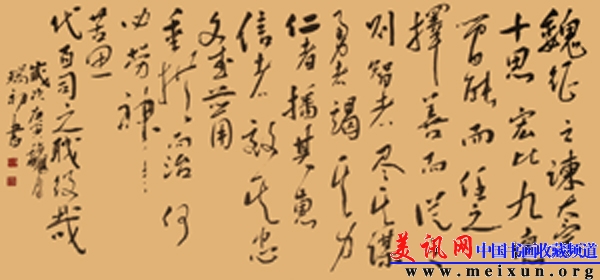 魏征之諫太宗
十思宏此九德
簡能而任之
擇善而從之
則智者尽其謀
勇者竭其力
仁者播其惠
信者效其忠
文武並用
垂拱而治何
必劳神
苦思
代百司之職役哉
歲次庚寅月
書
美讯网 中国书画收藏频道
www.meixun.org